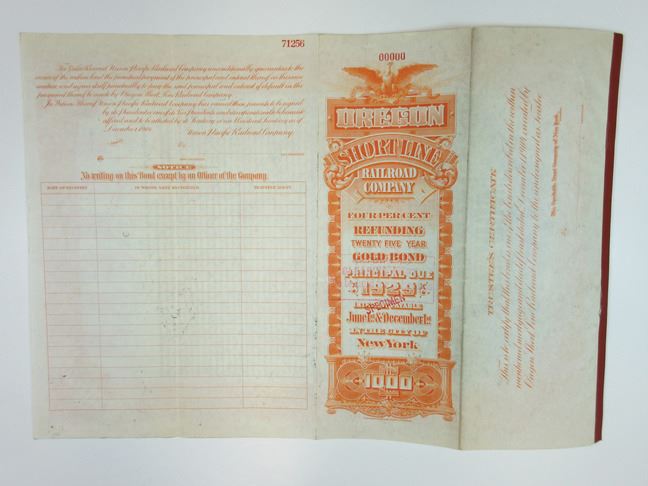 71256
For Value Received Union Pacific Railroad Company unconditionally guarantees to the
owner of the within bond the punctual payment of the principal and interest thereof
the punctual thereof to be made by Oregon Short Line Railroad Company.
In Witness Whereof Union Pacific Railroad Company has caused these presents to be signed
by its President or one of its Vice Presidents and its corporate seal to be hereunto
affixed and to be attested by its Secretary or an Assistant Secretary as of
December 1, 1904.
Union Pacific Railroad Company,
By
NOTICE
No writing on this Bond except by an Officer of the Company.
DATE OF REGISTRY
IN WHOSE NAME REGISTERED
TRANSFER AGENT
00000
OREGON
SHORT LINE
RAILROAD
COMPANY
FOUR PER CENT
REFUNDING
TWENTY FIVE YEAR
GOLD BOND
PRINCIPAL DUE
1929
SPECIMEN
INTEREST PAYABLE
June 1st & December 1st
IN THE CITY OF
New York
1000
TRUSTEE'S CERTIFICATE
This is to certify that this bond is one of the bonds described in the within
mentioned mortgage and deed of trust dated December 1, 1904, executed by
Oregon Short Line Railroad Company to the undersigned as trustee.
The Equitable Trust Company of New York,
By